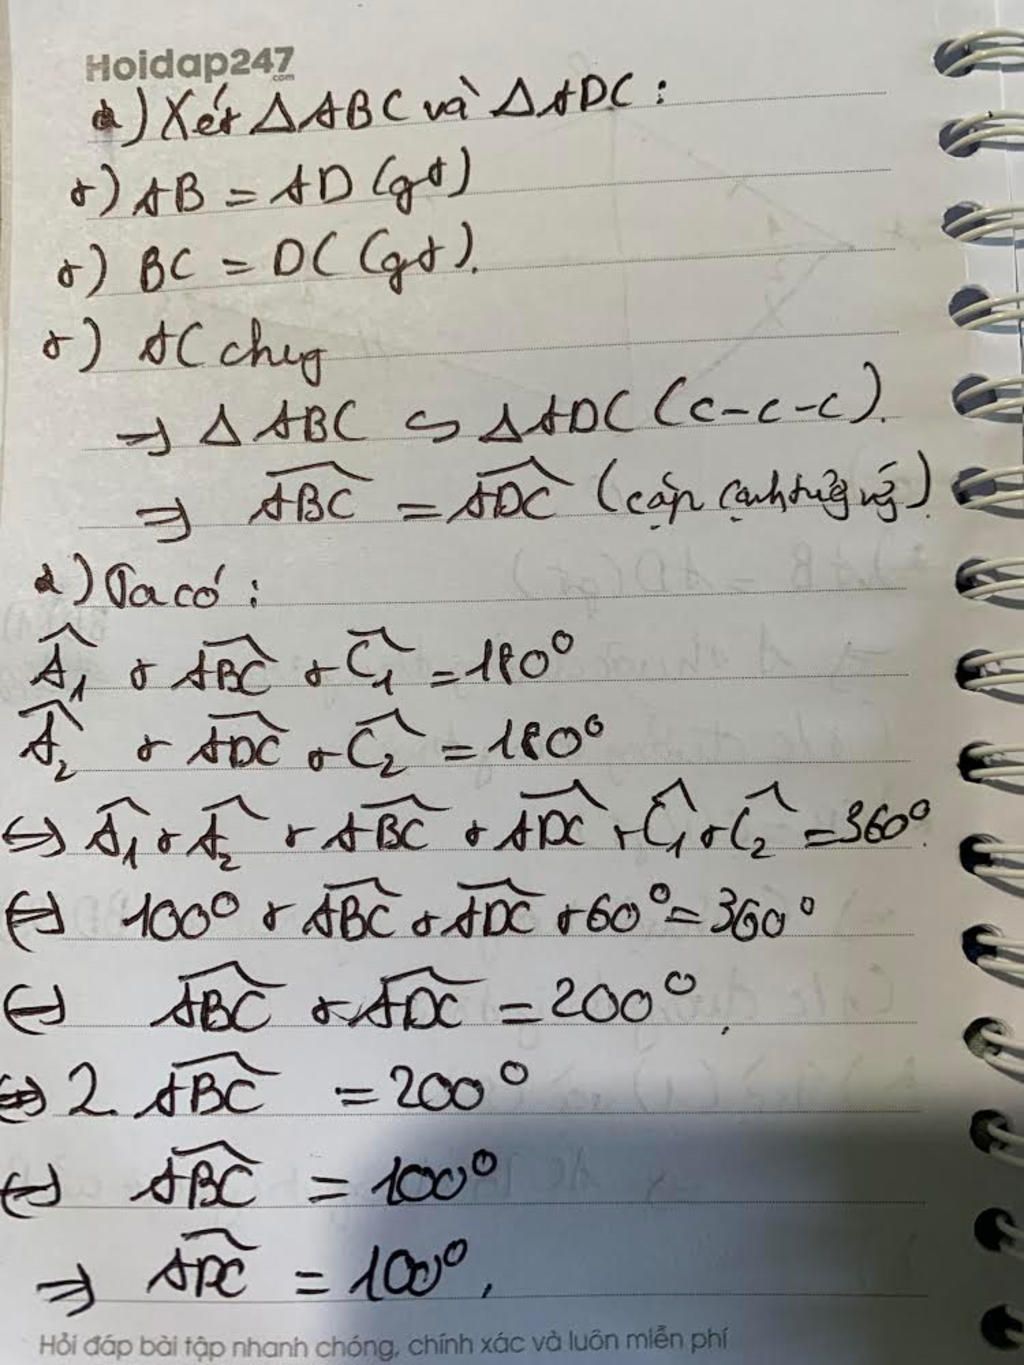 Hoidap247
.com
a) Xét △ABC và △ADC:
+) AB = AD (gt)
+) BC = DC (gt).
+) AC chung
⇒ △ABC ∽ △ADC (c-c-c).
⇒ \widehat{ABC} = \widehat{ADC} (cặp cạnh tương ứng)
a) Ta có:
\widehat{A_1} + \widehat{ABC} + \widehat{C_1} = 180°
\widehat{A_2} + \widehat{ADC} + \widehat{C_2} = 180°
⇔ \widehat{A_1} + \widehat{A_2} + \widehat{ABC} + \widehat{ADC} + \widehat{C_1} + \widehat{C_2} = 360°.
⇔ 100° + \widehat{ABC} + \widehat{ADC} + 60° = 360°
⇔ \widehat{ABC} + \widehat{ADC} = 200°.
⇔ 2. \widehat{ABC} = 200°
⇔ \widehat{ABC} = 100°
⇒ \widehat{ADC} = 100°.
Hỏi đáp bài tập nhanh chóng, chính xác và luôn miễn phí